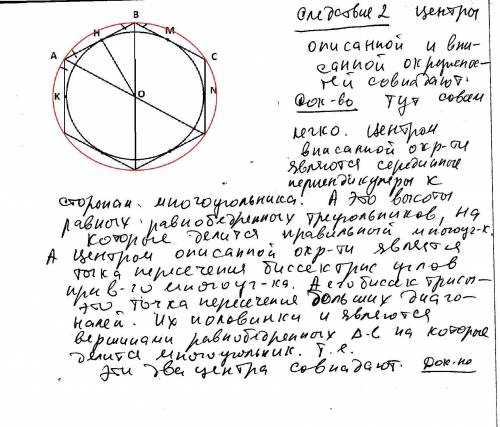 B
H
M
A
C
K
O
N
Следствие 2 Центры
описанной и впи-
санной окружнос-
тей совпадают.
Док-во Тут совсем
легко. Центром
вписанной окр-ти
являются серединные
перпендикуляры к
сторонам многоугольника. А это высоты
равных равнобедренных треугольников, на
которые делится правильный многоуг-к.
А центром описанной окр-ти является
точка пересечения биссектрис углов
прав-го многоуг-ка. А его биссектрисы-
это точка пересечения больших диаго-
налей. Их половинки и являются
вершинами равнобедренных Δ-в на которые
делится многоугольник. Т.е.
эти два центра совпадают. Док-но